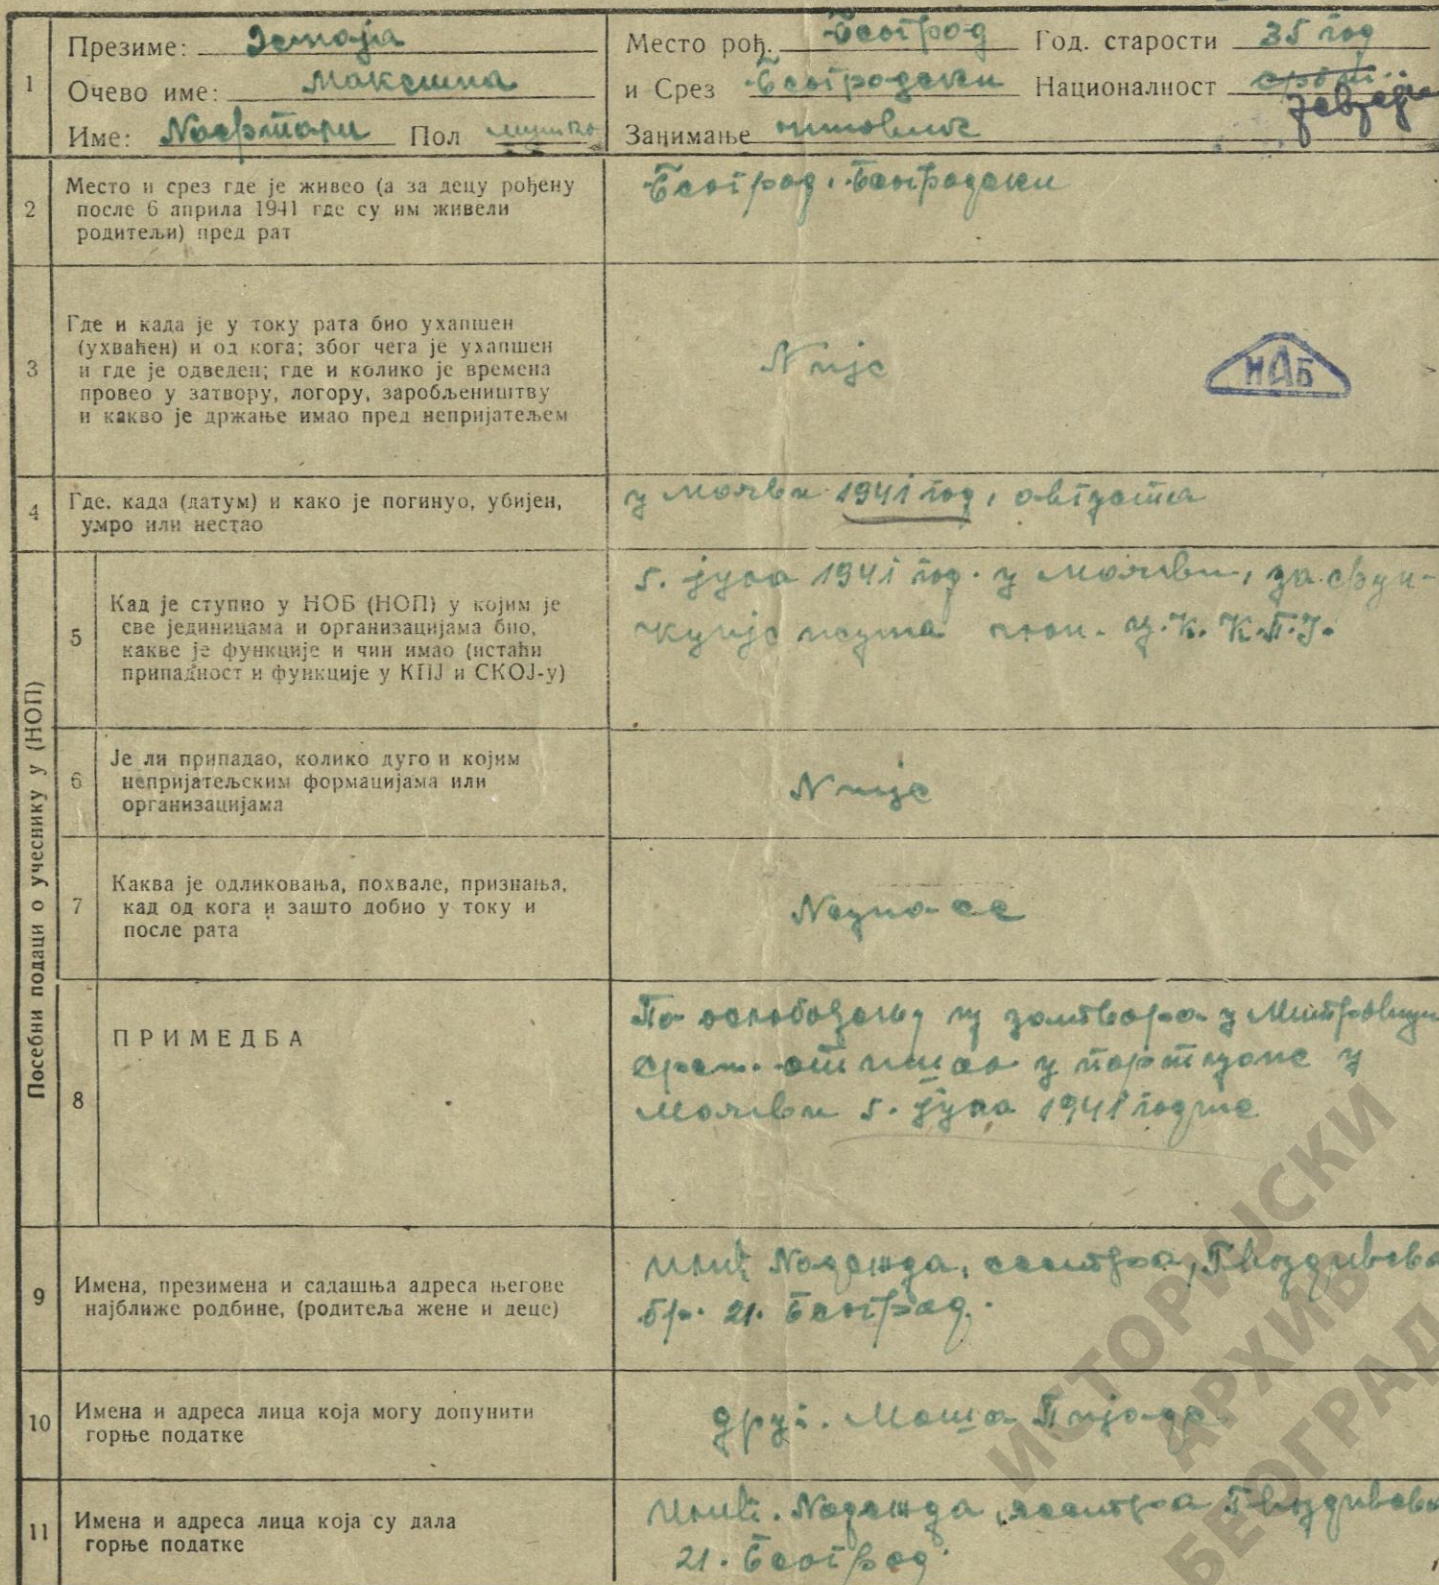 1
Презиме: Земаја
Место рођ. Београд Год. старости 35 год
Очево име: Максима
и Срез Београдски Националност
Име: Пол мушко
Занимање чиновник
2
Место и срез где је живео (а за децу рођену
после 6 априла 1941 где су им живели
родитељи) пред рат
Београд, Београдски
3
Где и када је у току рата био ухапшен
(ухваћен) и од кога; због чега је ухапшен
и где је одведен; где и колико је времена
провео у затвору, логору, заробљеништву
и какво је држање имао пред непријатељем
Није
НАБ
4
Где, када (датум) и како је погинуо, убијен,
умро или нестао
у Мачви 1941 год, августа
Посебни подаци о учеснику у (НОП)
5
Кад је ступио у НОБ (НОП) у којим је
све јединицама и организацијама био,
какве је функције и чин имао (истаћи
припадност и функције у КПЈ и СКОЈ-у)
5. јула 1941 год. у Мачви, за фун-
кције незна члан. Ц.К. К.П.Ј.
6
Је ли припадао, колико дуго и којим
непријатељским формацијама или
организацијама
Није
7
Каква је одликовања, похвале, признања,
кад од кога и зашто добио у току и
после рата
Незна се
8
ПРИМЕДБА
По ослобођењу из затвора у Митровици
срем. отишао у партизане у
Мачви 5. јула 1941 године
9
Имена, презимена и садашња адреса његове
најближе родбине, (родитеља жене и деце)
Илић Надежда, сестра, Гвоздићева
бр. 21. Београд.
10
Имена и адреса лица која могу допунити
горње податке
друг. Моша Пијаде
11
Имена и адреса лица која су дала
горње податке
Илић. Надежда, сестра Гвоздићева
21. Београд.
ИСТОРИЈСКИ
АРХИВ
БЕОГРАД